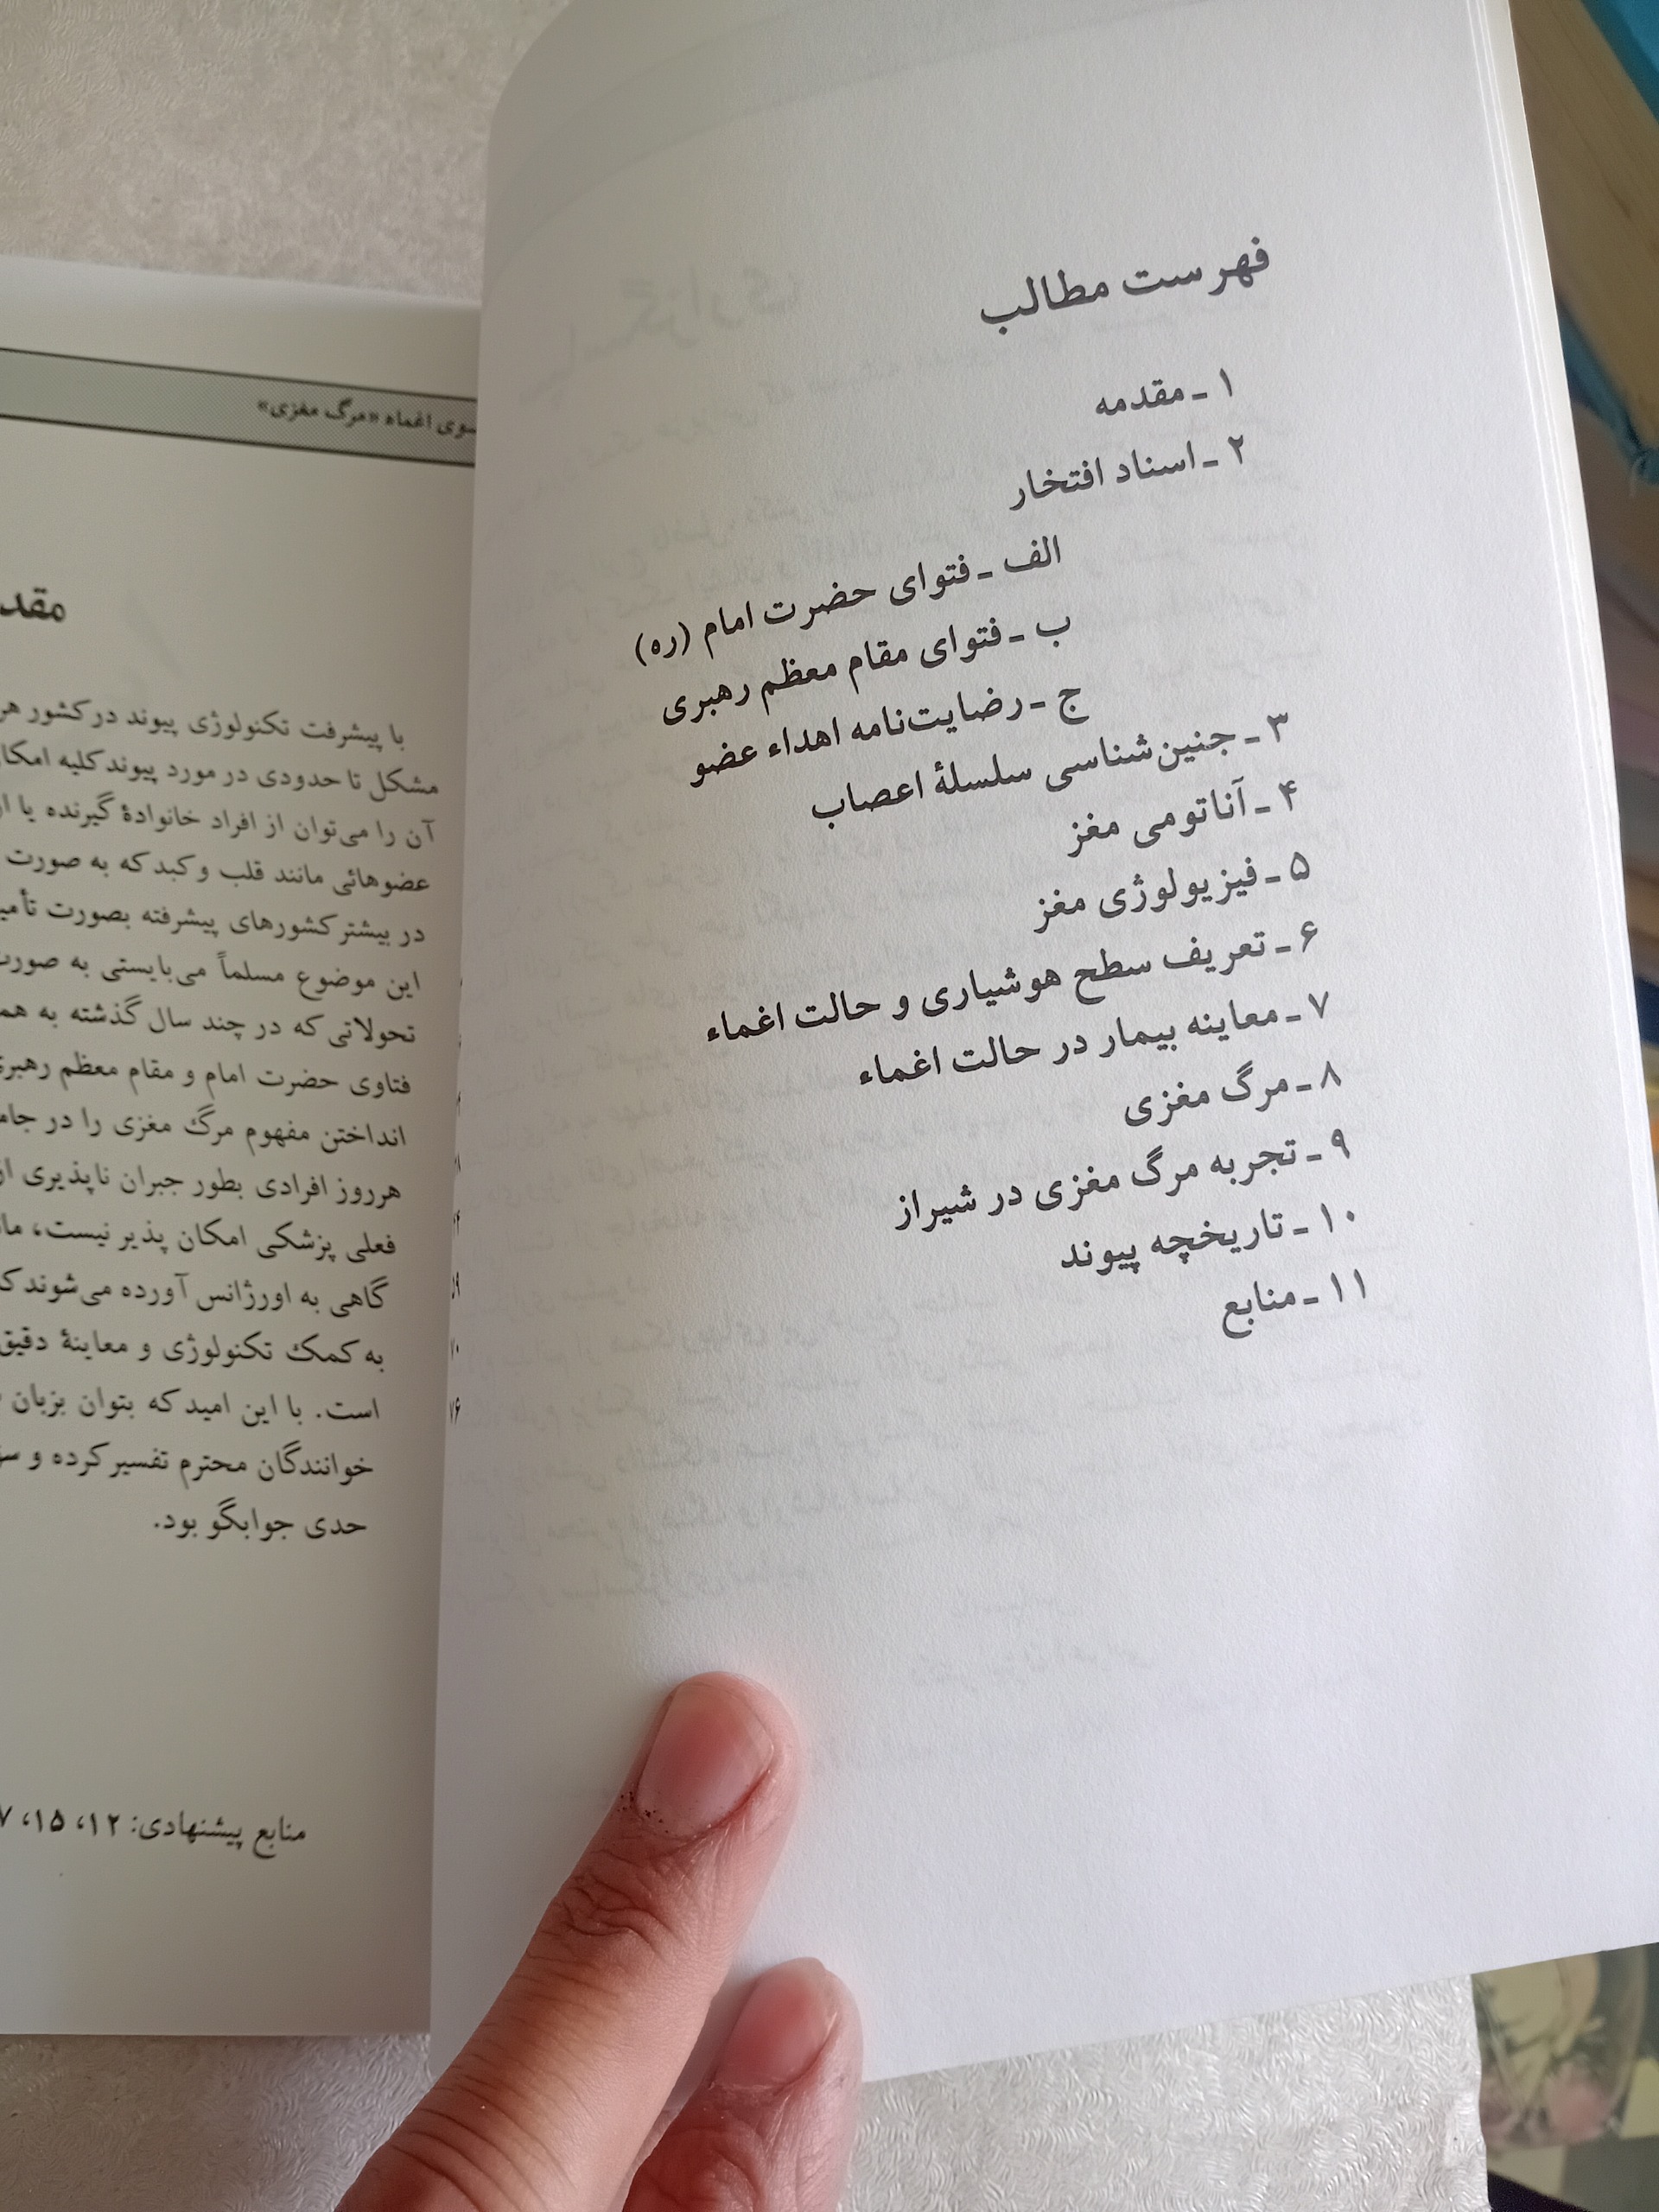 فهرست مطالب
۱ ـ مقدمه
۲ ـ اسناد افتخار
الف ـ فتوای حضرت امام (ره)
ب ـ فتوای مقام معظم رهبری
ج ـ رضایت‌نامه اهداء عضو
۳ ـ جنین‌شناسی سلسلهٔ اعصاب
۴ ـ آناتومی مغز
۵ ـ فیزیولوژی مغز
۶ ـ تعریف سطح هوشیاری و حالت اغماء
۷ ـ معاینه بیمار در حالت اغماء
۸ ـ مرگ مغزی
۹ ـ تجربه مرگ مغزی در شیراز
۱۰ ـ تاریخچه پیوند
۱۱ ـ منابع
۷۰
۷۶
سوی اغماء «مرگ مغزی»
با پیشرفت تکنولوژی پیوند در کشور
مشکل تا حدودی در مورد پیوند کلیه
آن را می‌توان از افراد خانوادهٔ گیرنده یا
عضوهائی مانند قلب و کبد که به صورت
در بیشتر کشورهای پیشرفته بصورت
این موضوع مسلماً می‌بایستی به
تحولاتی که در چند سال گذشته به
فتاوی حضرت امام و مقام معظم
انداختن مفهوم مرگ مغزی را در
هرروز افرادی بطور جبران ناپذیری
فعلی پزشکی امکان پذیر نیست،
گاهی به اورژانس آورده می‌شوند
به کمک تکنولوژی و معاینهٔ دقیق
است. با این امید که بتوان بزبان
خوانندگان محترم تفسیر کرده و
حدی جوابگو بود.
منابع پیشنهادی: ۱۲، ۱۵،